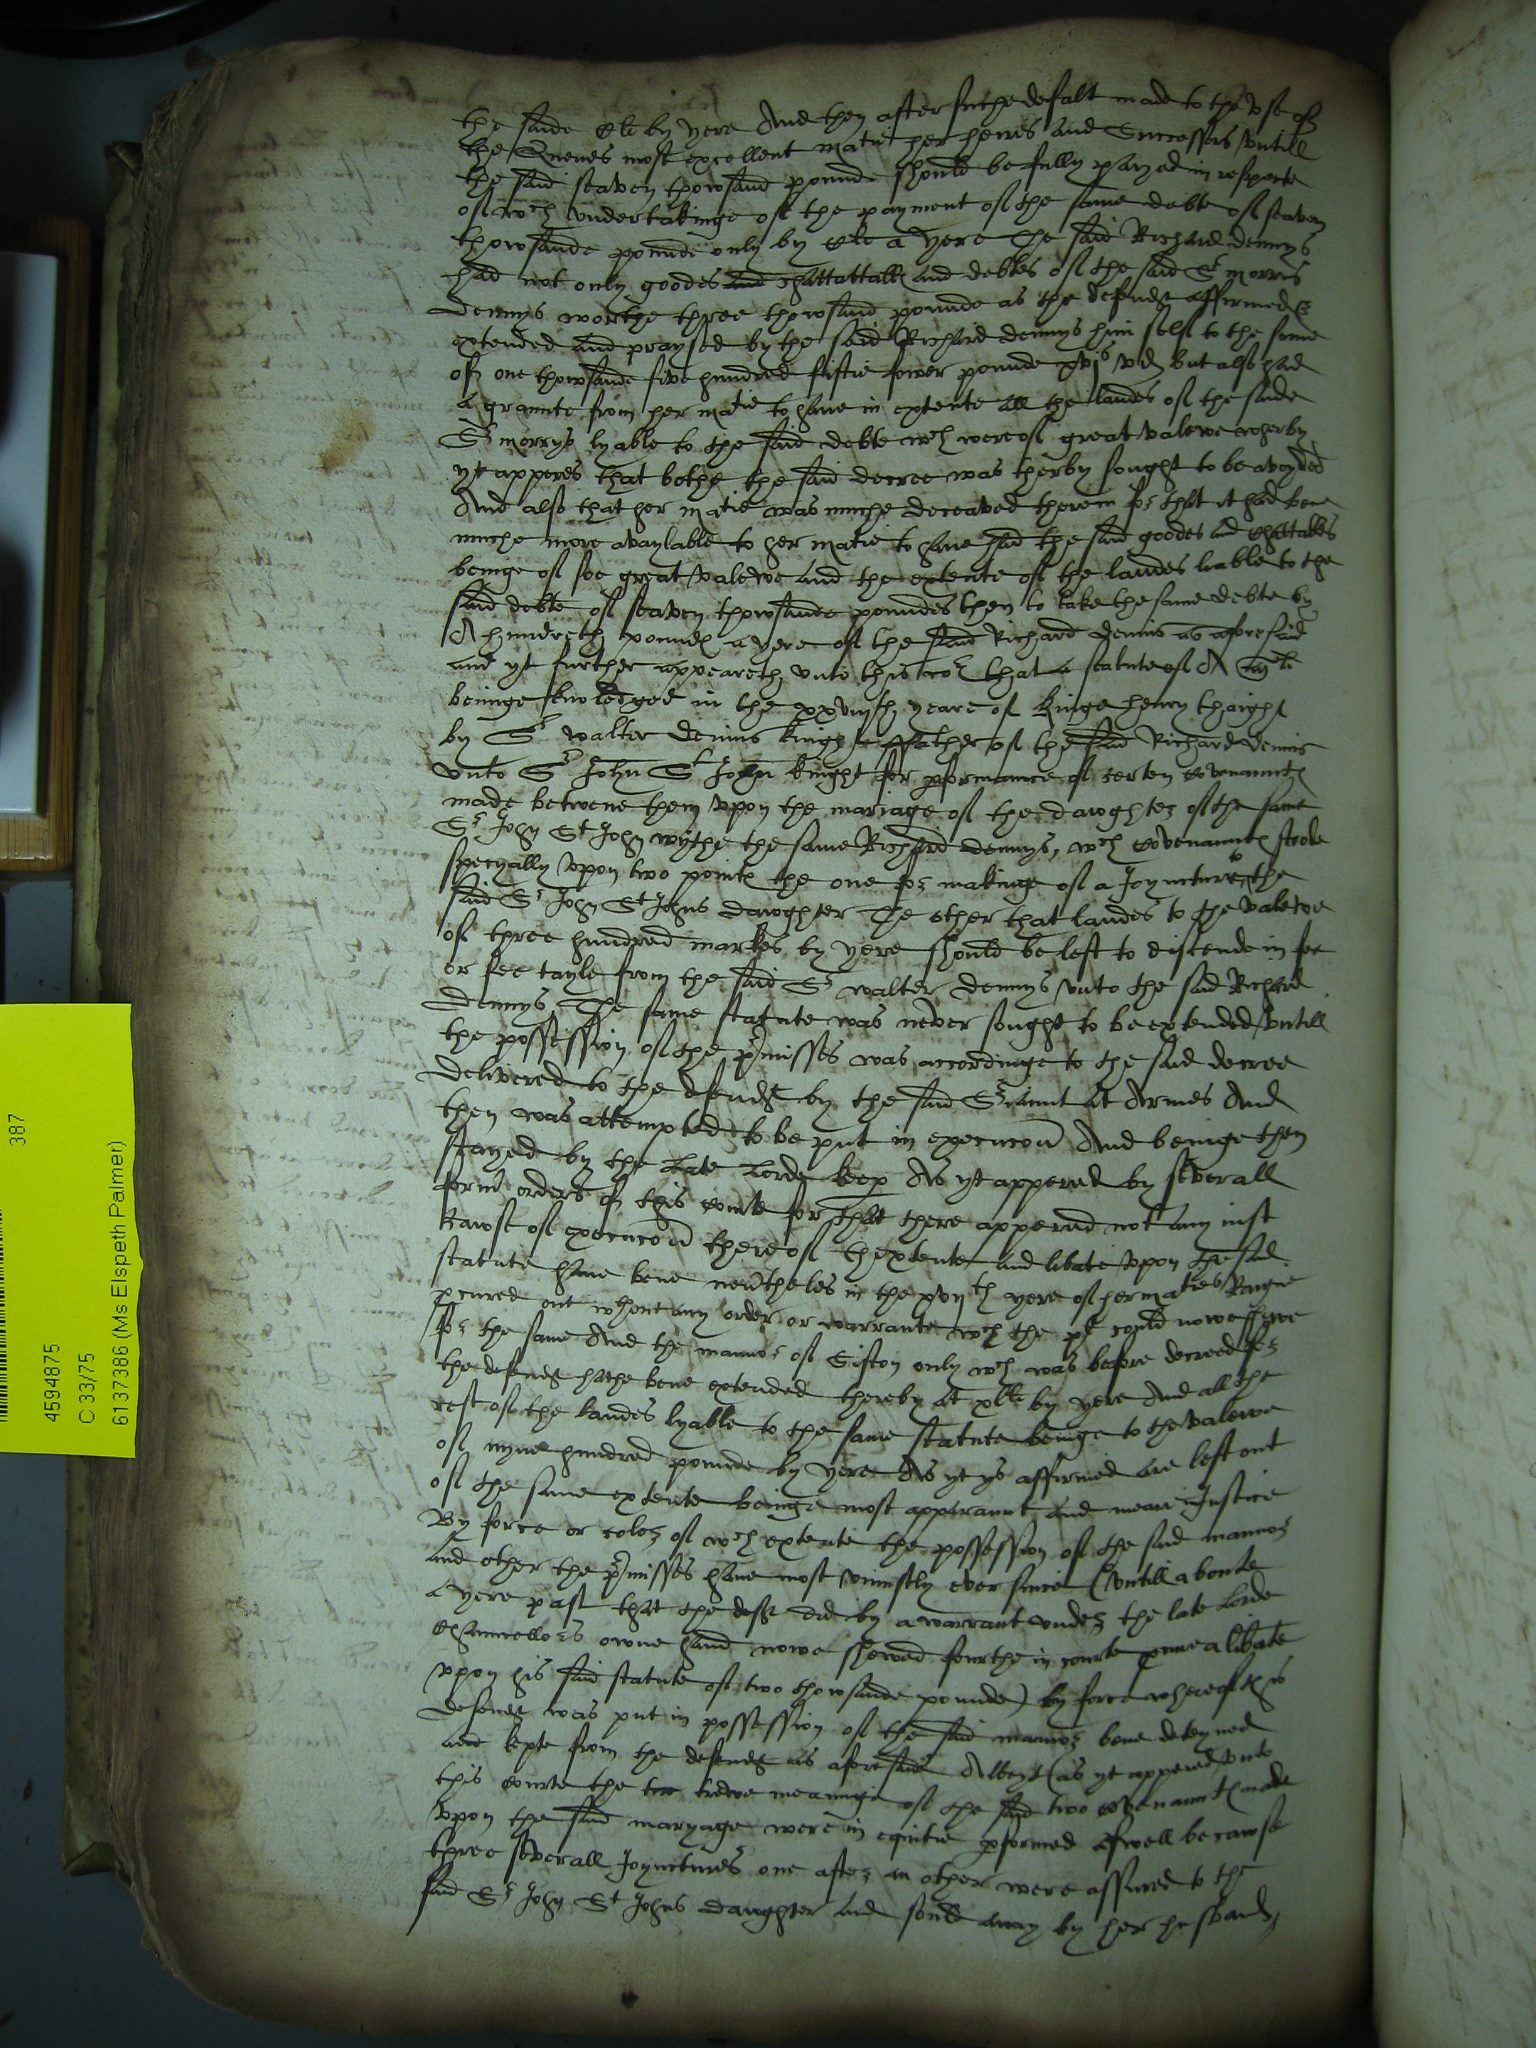 the saide Cli by yere And then after suche defalt made to the use of
the Quenes most excellent matie her heires and Successors untill
the said seaven thowsand pounde should be fully payed in respecte
of wch undertakinge of the payment of the same debte of seaven
thowsande pounde only by Cli a yere The said Richard dennys
had not only goodes and chattalls and debtes of the said Sr morris
dennys worthe three thowsand pounde as the defendt affirmed &
extended and praysed by the said Richard dennys him self to the some
of one thowsande five hundred fiftie fower pounde xvjs vd but also had
a graunte from her matie to have in extente all the landes of the saide
Sr morrys lyable to the said debte wch were of great valewe wherby
yt apperes that bothe the said decree was therby sought to be avoyded
And also that her matie was muche deceaved therein for that it had bene
muche more avaylable to her matie to have had the said goodes and chattalles
beinge of soe great valewe and the extente of the landes liable to the
said debte of seaven thowsande poundes then to take the same debte by
A hundreth pounde a yere of the said Richard dennis as aforesaid
and yt further appeareth unto this cort that a statute of A mli
beinge knowledged in the xxviijth yeare of kinge henry theight
by Sr walter dennis knight father of the said Richard dennis
unto Sr John St John knight for pformance of certen covenauntes
made betwene them upon the mariage of the dawghter of the same
Sr John St John wythe the same Richard dennys, wch covenauntes stoode
specyally upon two pointes the one for makinge of a Joyncture to the
said Sr John St Johns dawghter The other that landes to the valewe
of three hundred markes by yere should be left to discende in fee
or fee tayle from the said Sr walter dennys unto the said Richard
dennys The same statute was never sought to be extended untill
the possession of the pmisses was accordinge to the said decree
delivered to the defendt by the said Sriaunt at Armes And
then was attempted to be put in execucon And beinge then
stayed by the late Lorde keep As yt appered by severall
form orders of this courte for that there appered not any iust
cawse of execucon thereof thextente and libate upon the said
statute have bene neutheles in the xvijth yere of her maties Raigne
pcured out wthout any order or warrante wch the pl could nowe shewe
for the same And the mannor of Siston only wch was before decreed for
the defendt hathe bene extended thereby at xlli by yere And all the
rest of the landes lyable to the same statute beinge to the valewe
of nyne hundred pounde by yere As yt ys affirmed are left out
of the same extente beinge most apparaunt and meare iniustice
By force or color of wch extente the possession of the said mannor
and other the pmisses have most uniustly ever since (untill aboute
a yere past that the deft did by a warrant under the late Lorde
Chauncellors owne hand nowe shewed fourthe in courte pcure a libate
upon his said statute of two thowsande pounde) by force wherof the
defendt was put in possession of the said mannor bene deteyned
and kepte from the defendt as aforesaid Albeyt (as yt appered unto
this courte the trewe meaninge of the said two covenauntes made
upon the said maryage were in equitie pformed aswell becawse
three severall Joynctures one after an other were assured to the
said Sr John St Johns dawghter and sould away by her husband,
387
4594875
C 33/75
6137386 (Ms Elspeth Palmer)